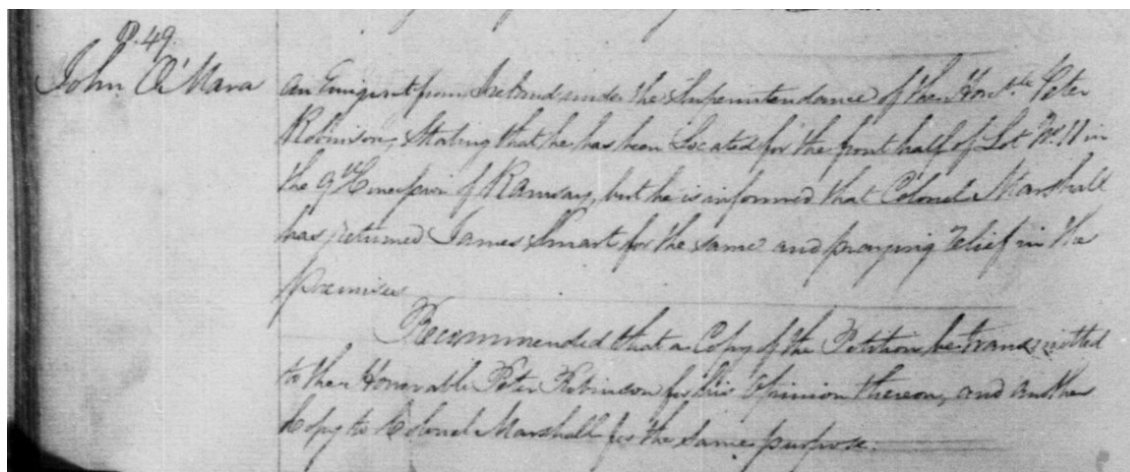 P. 49.
John O'Mara
An Emigrant from Ireland under the Superintendance of the Honble Peter
Robinson, Stating that he has been Located for the front half of Lot No. 11 in
the 9th Concession of Ramsay, but he is informed that Colonel Marshall
has returned James Smart for the same and praying relief in the
premises
Recommended that a Copy of the Petition be transmitted
to the Honorable Peter Robinson for his Opinion thereon, and another
Copy to Colonel Marshall for the same purpose.